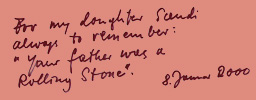 For my daughter Sandi
always to remember:
"Your father was a
Rolling Stone".
8. Januar 2000